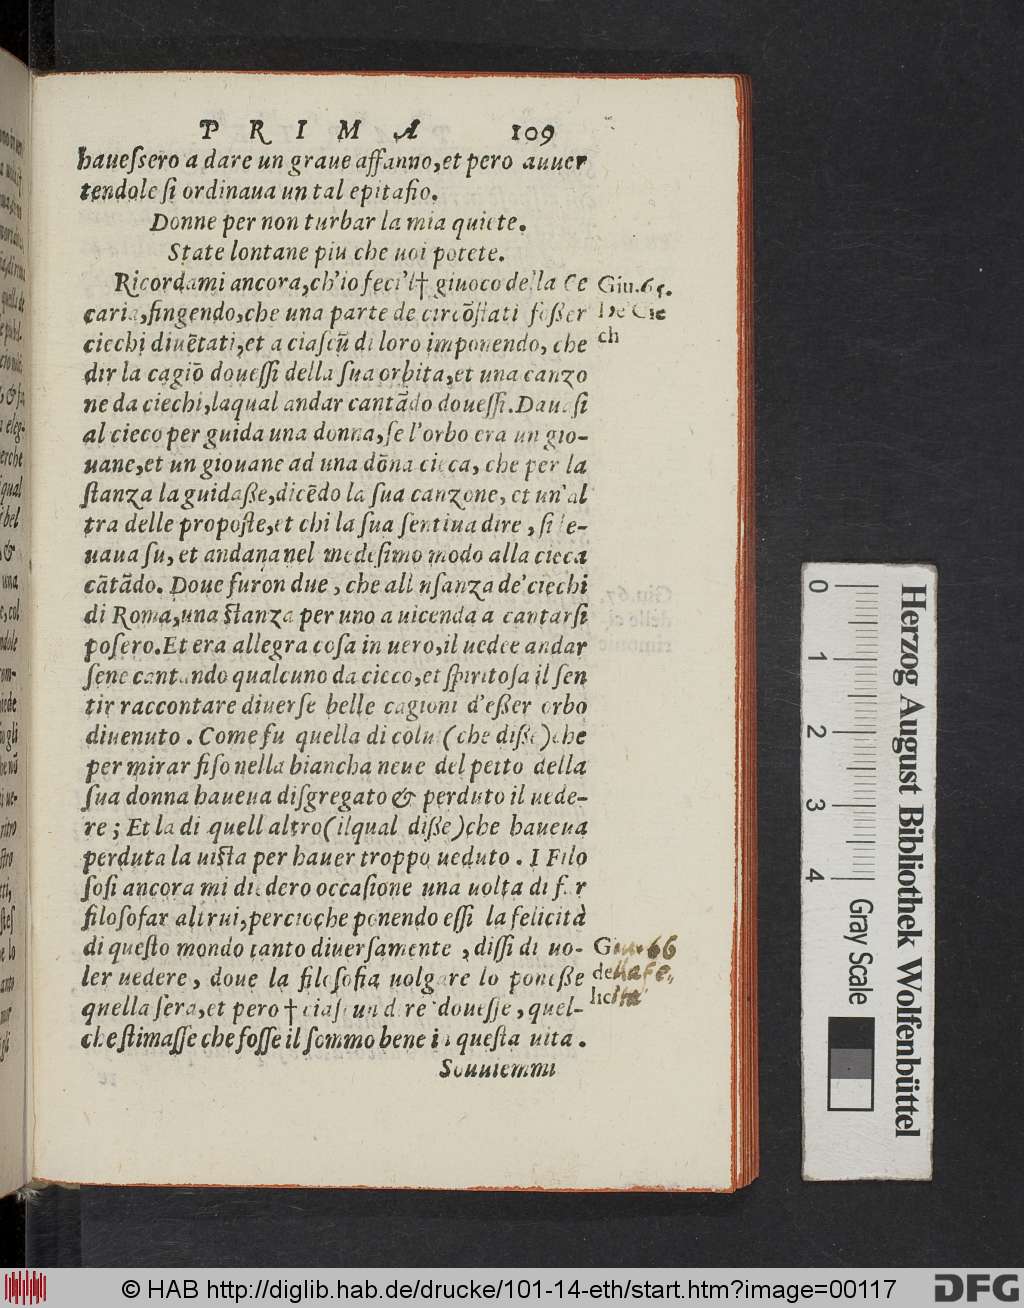 PRIMA 109
hauessero a dare un graue affanno, et pero auuer
tendole si ordinaua un tal epitafio.
Donne per non turbar la mia quiete.
State lontane piu che uoi potete.
Ricordami ancora, ch'io feci'l† giuoco della Ce
caria, fingendo, che una parte de circõstati fosser
ciechi diuẽtati, et a ciascũ di loro imponendo, che
dir la cagiõ douessi della sua orbita, et una canzo
ne da ciechi, laqual andar cantãdo douessi. Dauasi
al cieco per guida una donna, se l'orbo era un gio-
uane, et un giouane ad una dõna cieca, che per la
stanza la guidasse, dicẽdo la sua canzone, et un'al
tra delle proposte, et chi la sua sentiua dire, si le-
uaua su, et andaua nel medesimo modo alla cieca
cãtãdo. Doue furon due, che all usanza de' ciechi
di Roma, una stanza per uno a uicenda a cantarsi
posero. Et era allegra cosa in uero, il uedee andar
sene cantando qualcuno da cieco, et spiritosa il sen
tir raccontare diuerse belle cagioni d'esser orbo
diuenuto. Come fu quella di colui (che disse) che
per mirar fiso nella biancha neue del petto della
sua donna haueua disgregato & perduto il uede-
re; Et la di quell altro (ilqual disse) che haueua
perduta la uista per hauer troppo ueduto. I Filo
sofi ancora mi diedero occasione una uolta di far
filosofar altrui, percioche ponendo essi la felicità
di questo mondo tanto diuersamente, dissi di uo-
ler uedere, doue la filosofia uolgare lo ponesse
quella sera, et pero † ciascun dire douesse, quel-
che stimasse che fosse il sommo bene in questa uita.
Souuiemmi
Giu. 65.
De Cie
ch
Giu. 66
della fe-
licita
0
1
2
3
4
Gray Scale
Herzog August Bibliothek Wolfenbüttel
© HAB http://diglib.hab.de/drucke/101-14-eth/start.htm?image=00117
DFG